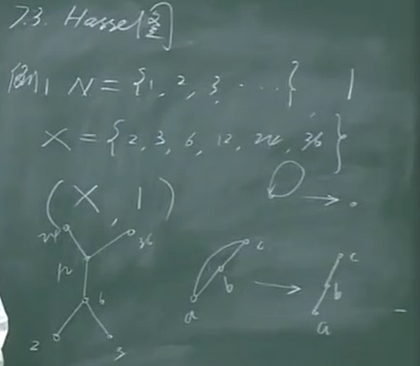 7.3. Hasse图
例1 N={1,2,3,...} |
X={2,3,6,12,24,36}
(X,|)
24 36
12
6
2 3
c
b
a
c
b
a